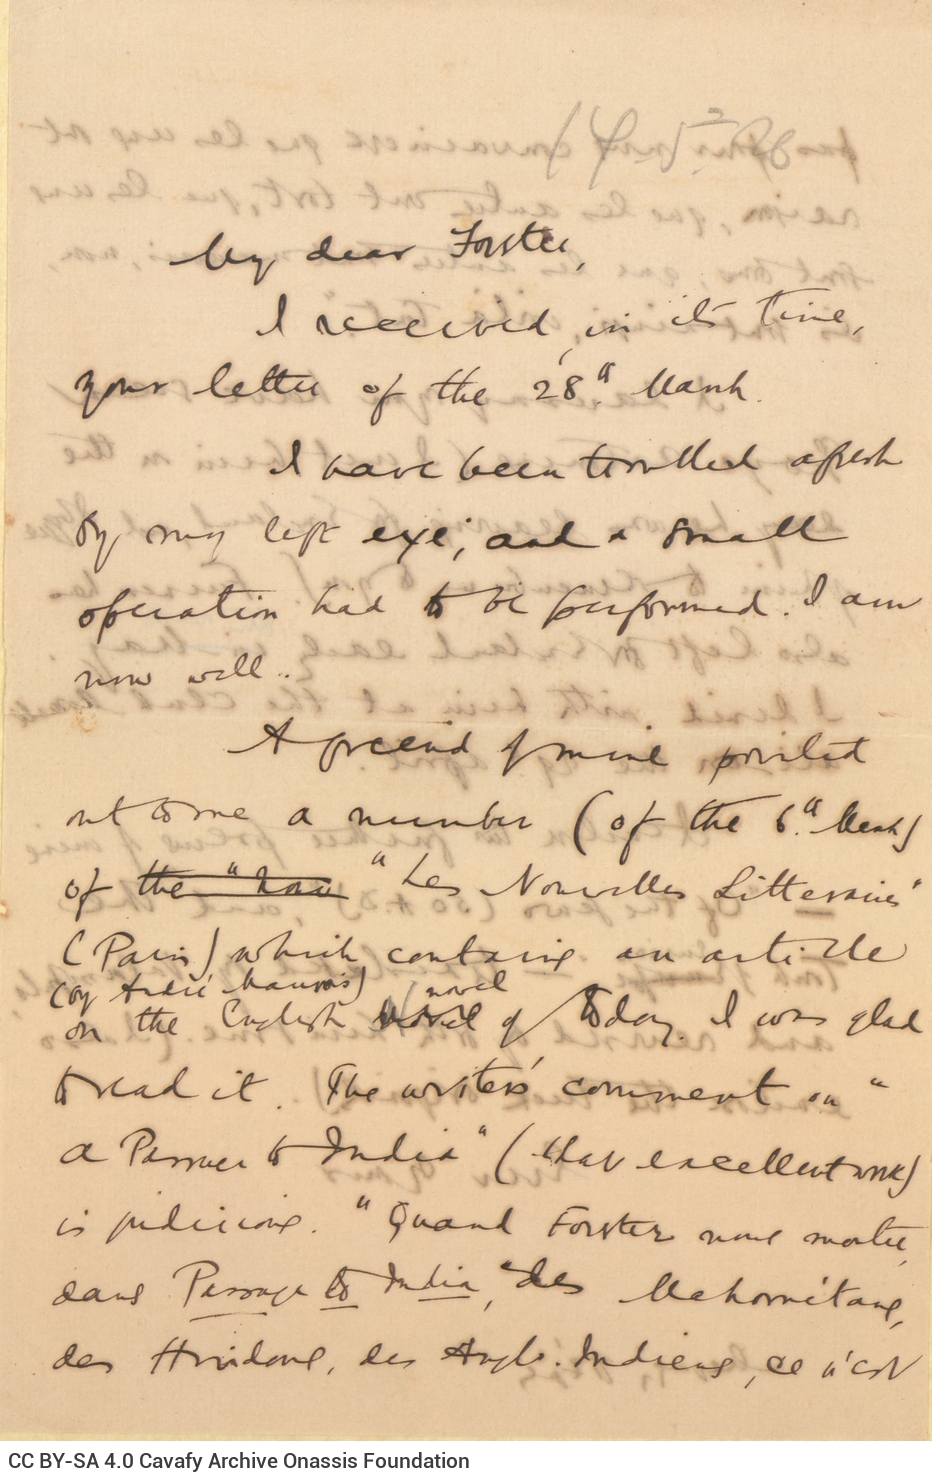 My dear Forster,
I received, in its time,
your letter of the 28" March.
I have been troubled afresh
by my left eye; and a small
operation had to be performed. I am
now well.
A friend of mine pointed
out to me a number (of the 6" March)
of the "Nou "Les Nouvelles Litteraires"
(Paris) which contains an article
(by André Maurois) novel
on the English novel of Today. I was glad
to read it. The writer's comment on "
a Passage to India" (that excellent work)
is judicious. "Quand Forster nous montre,
dans Passage to India, des Mahométans,
des Hindous, des Anglo-Indiens, ce n'est
CC BY-SA 4.0 Cavafy Archive Onassis Foundation